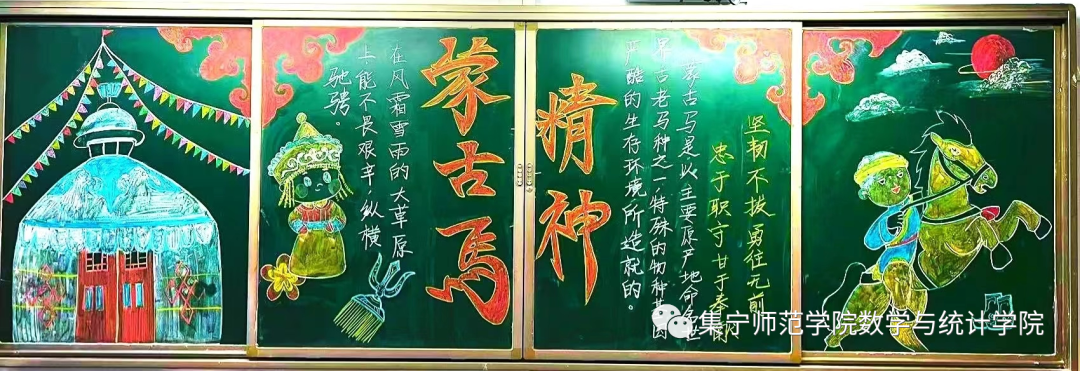 蒙古马
精神
在风霜雪雨的大草原
上能不畏艰辛,纵横
驰骋。
坚韧不拔 勇往无前
忠于职守 甘于奉献
蒙古马是以主要原产地命名世
界古老马种之一,特殊的物种基因
严酷的生存环境所造就的。
集宁师范学院数学与统计学院